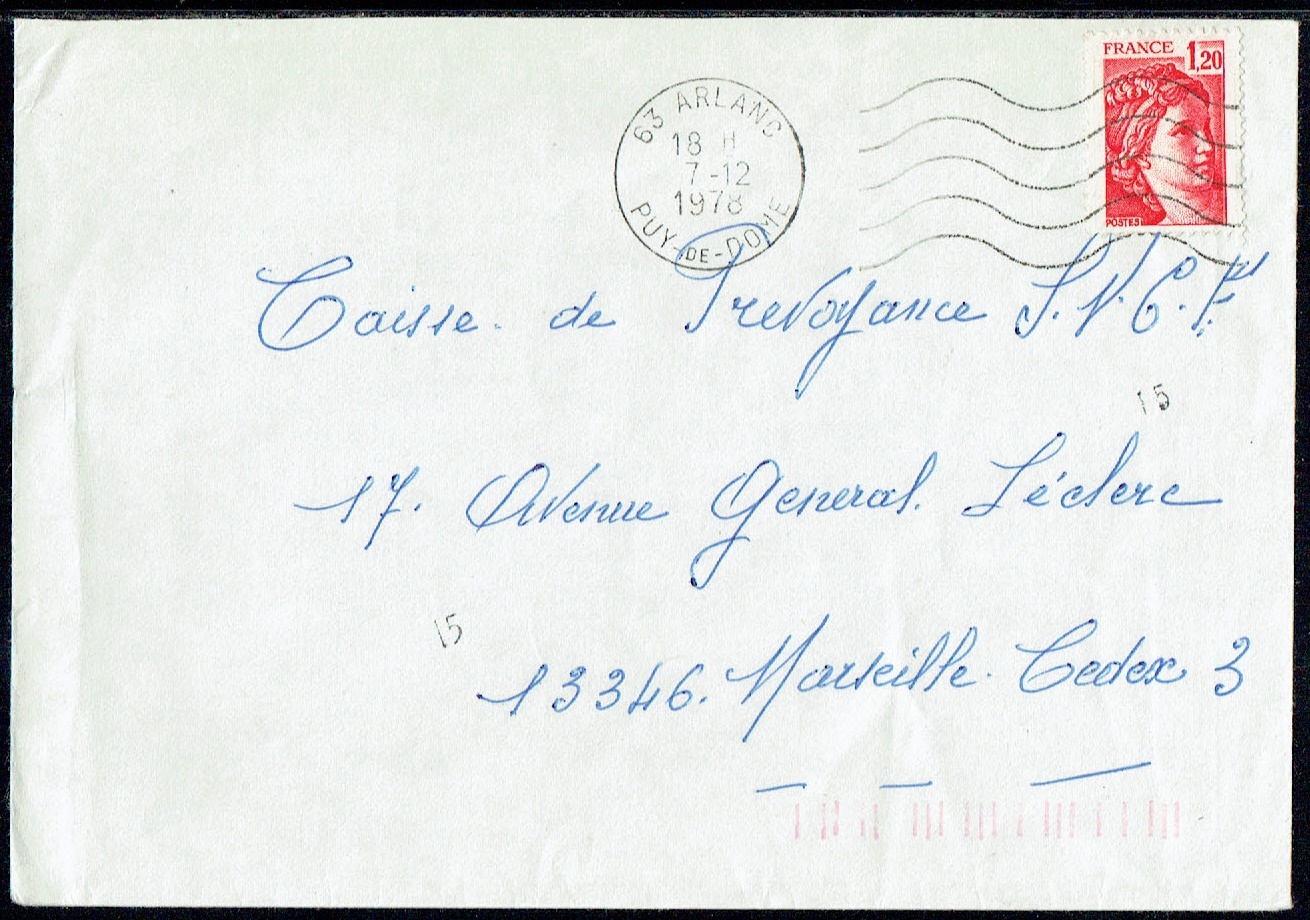 FRANCE 1,20
POSTES
63 ARLANC
18 H
7-12
1978
PUY-DE-DOME
Caisse. de Prevoyance S.N.C.F
15
17. Avenue General. Léclerc
15
13346. Marseille. Cedex 3